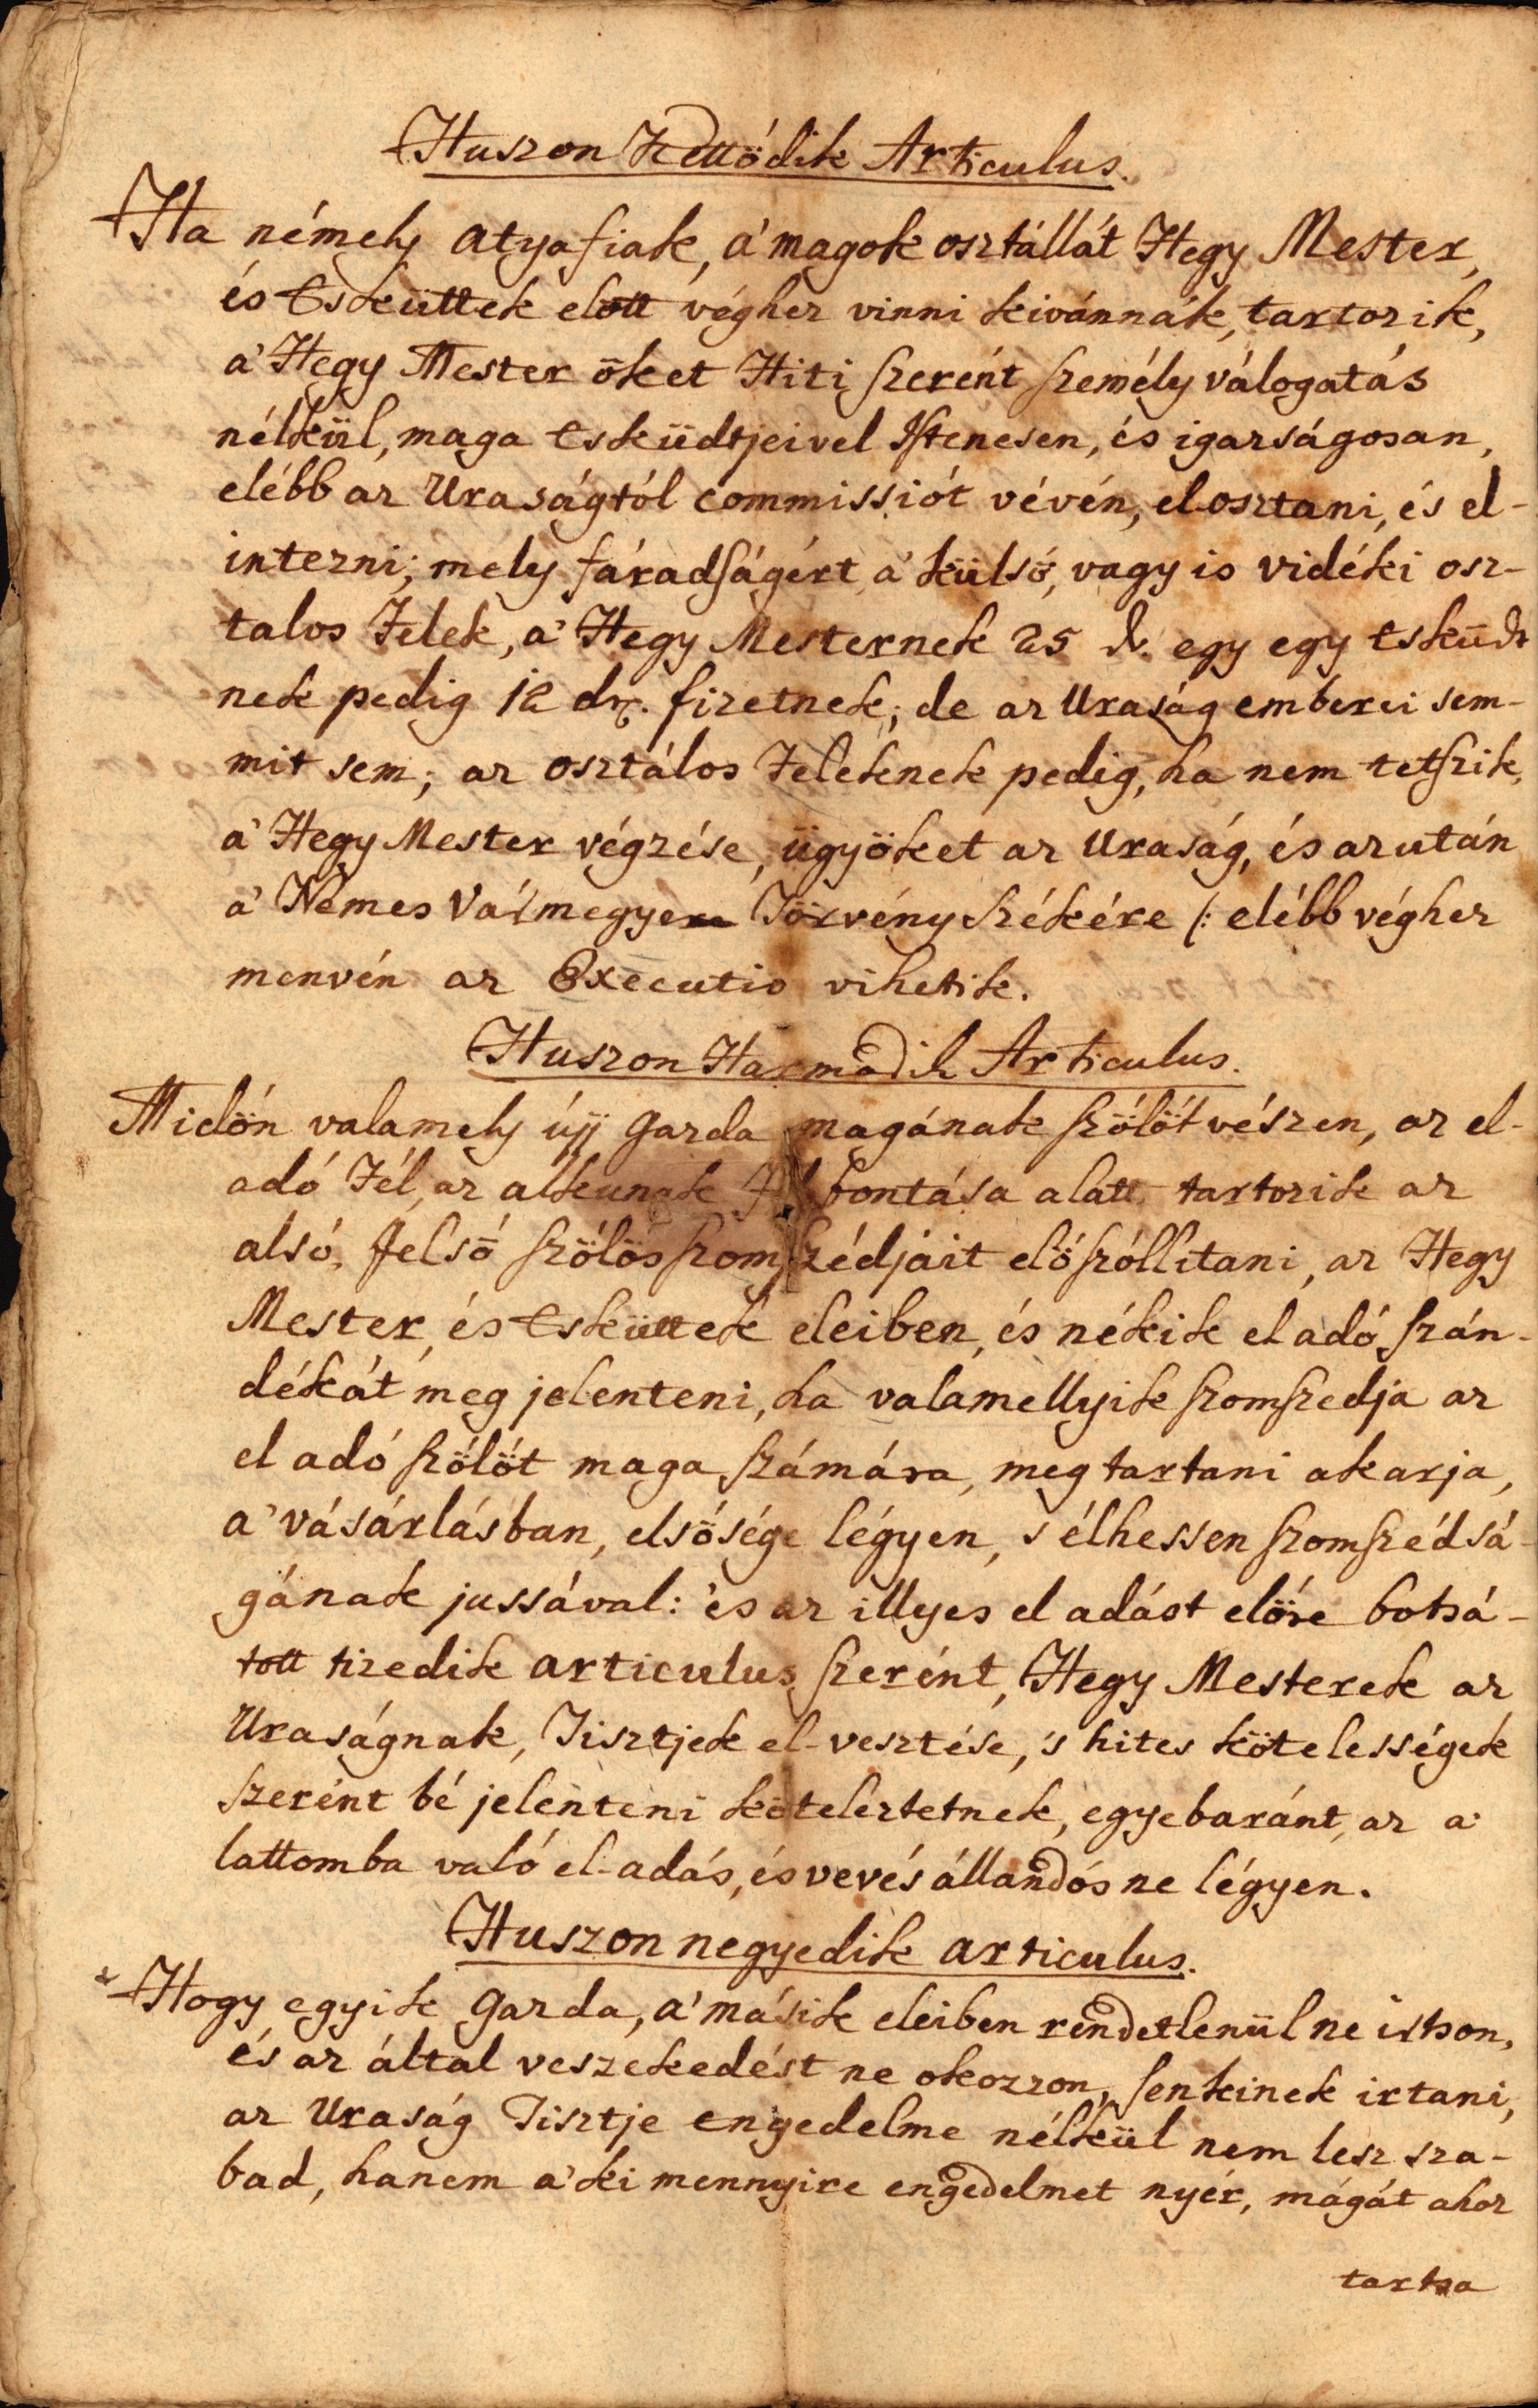 Huszon Kettödik Articulus.
Ha némely atyafiak, a' magok osztállát Hegy Mester,
és Esküttek elött véghez vinni kivánnák, tartozik,
a' Hegy Mester öket Hiti szerént személy válogatás
nélkül, maga esküdtjeivel Istenesen, és igazságosan,
elébb az Uraságtól commissiót vévén, el-osztani, és el-
intezni; mely fáradságért a' külsö, vagy is vidéki osz-
talos Felek, a' Hegy Mesternek 25 d. egy egy esküdt
nek pedig 12 dr. fizetnek; de az Uraság emberei sem-
mit sem; az osztálos Feleknek pedig, ha nem tetszik,
a' Hegy Mester végzése, ügyöket az Uraság, és azután
a' Nemes Vármegye Törvény Székére (: elébb véghez
menvén az Executio vihetik.
Huszon Harmadik Articulus.
Midön valamely újj Gazda magának szölöt vészen, az el-
adó Fél, az alkunak bontása alatt tartozik az
alsó, felsö szölös szomszédjait elöszóllitani, az Hegy
Mester, és Esküttek eleiben, és nékik el adó szán-
dékát meg jelenteni, ha valamellyik szomszedja az
el adó szölöt maga számára, meg tartani akarja,
a' vásárlásban, elsösége légyen, s élhessen szomszédsá-
gának jussával: és az illyes el adást elöre botsá-
tott tizedik articulus szerént, Hegy Mesterek az
Uraságnak, Tisztjek el-vesztése, 's hites kötelességek
szerént bé jelenteni köteleztetnek, egyebaránt, az a-
lattomba való el-adás, és vevés állandós ne légyen.
Huszon negyedik articulus.
Hogy egyik Gazda, a' másik eleiben rendetlenül ne irtson,
és az által veszekedést ne okozzon, senkinek irtani,
az Uraság Tisztje engedelme nélkül nem lesz sza-
bad, hanem a' ki mennyire engedelmet nyér, mágát ahoz
tartsa